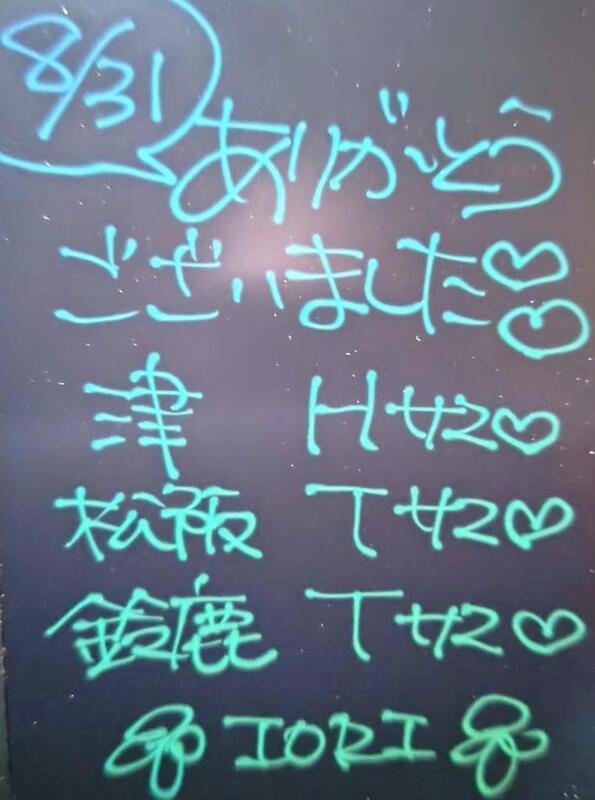 8/31
ありがとう
ございました♡♡
津 Hサマ♡
松阪 Tサマ♡
鈴鹿 Tサマ♡
IORI